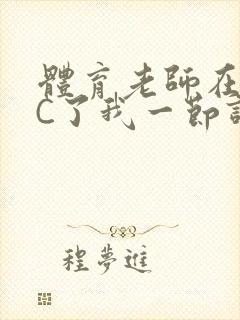 體育老師在
C了我一節
程夢進